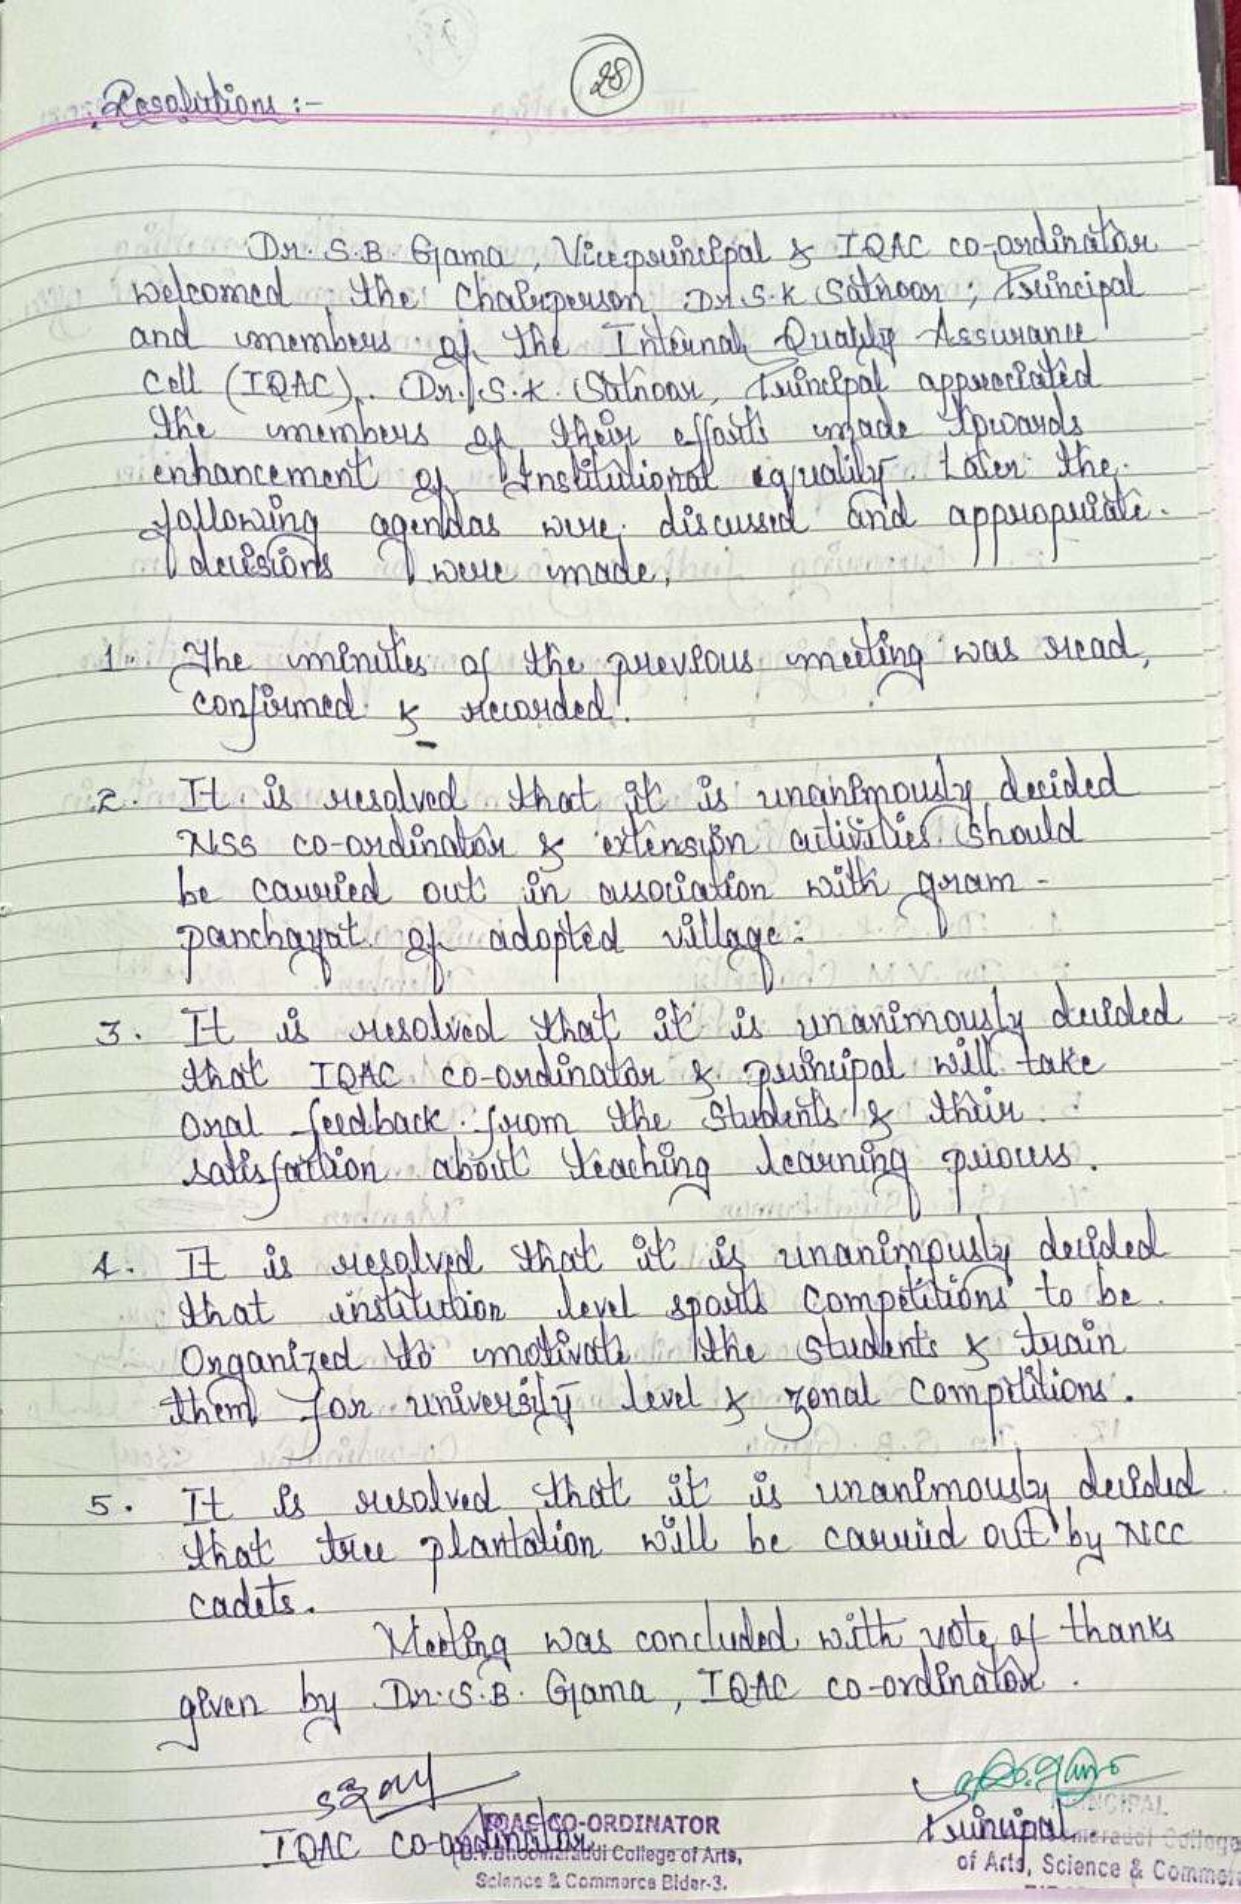 28
Resolutions :-
Dr. S.B Gama, Viceprincipal & IQAC co-ordinator
welcomed the Chairperson Dr. S.K Satnoor, Principal
and members of the Internal Quality Assurance
Cell (IQAC). Dr. S.K. Satnoor, Principal appreciated
the members of their efforts made towards
enhancement of Institutional quality. Later the
following agendas were discussed and appropriate
decisions were made,
1. The minutes of the previous meeting was read,
confirmed & recorded.
2. It is resolved that it is unanimously decided
NSS co-ordinator & extension activities should
be carried out in association with gram -
panchayat of adopted village.
3. It is resolved that it is unanimously decided
that IQAC co-ordinator & principal will take
oral feedback from the students & their
satisfaction about teaching learning process.
4. It is resolved that it is unanimously decided
that institution level sports competitions to be
Organized to motivate the students & train
them for university level & zonal competitions.
5. It is resolved that it is unanimously decided
that tree plantation will be carried out by NCC
cadets.
Meeting was concluded with vote of thanks
given by Dr. S.B. Gama, IQAC co-ordinator.
IQAC co-ordinator
IQAC CO-ORDINATOR
College of Arts,
Science & Commerce Bidar-3.
Principal
PRINCIPAL
College
of Arts, Science & Commer